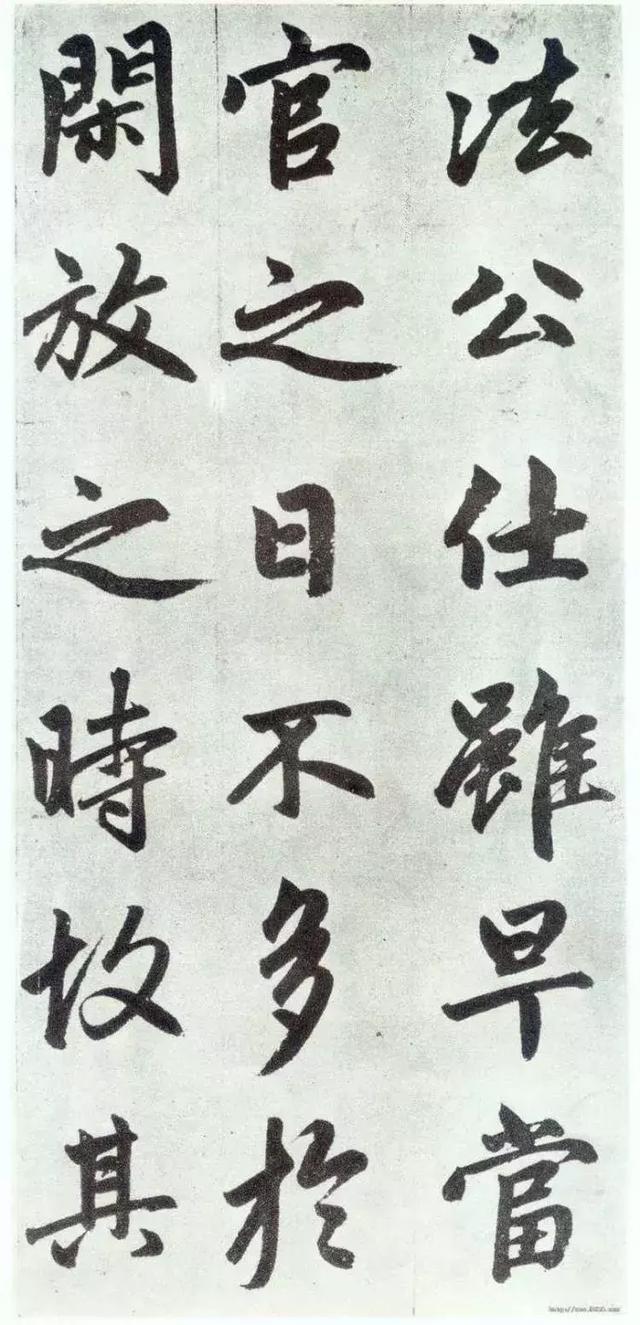 法公仕雖早當
官之日不多於
閑放之時故其